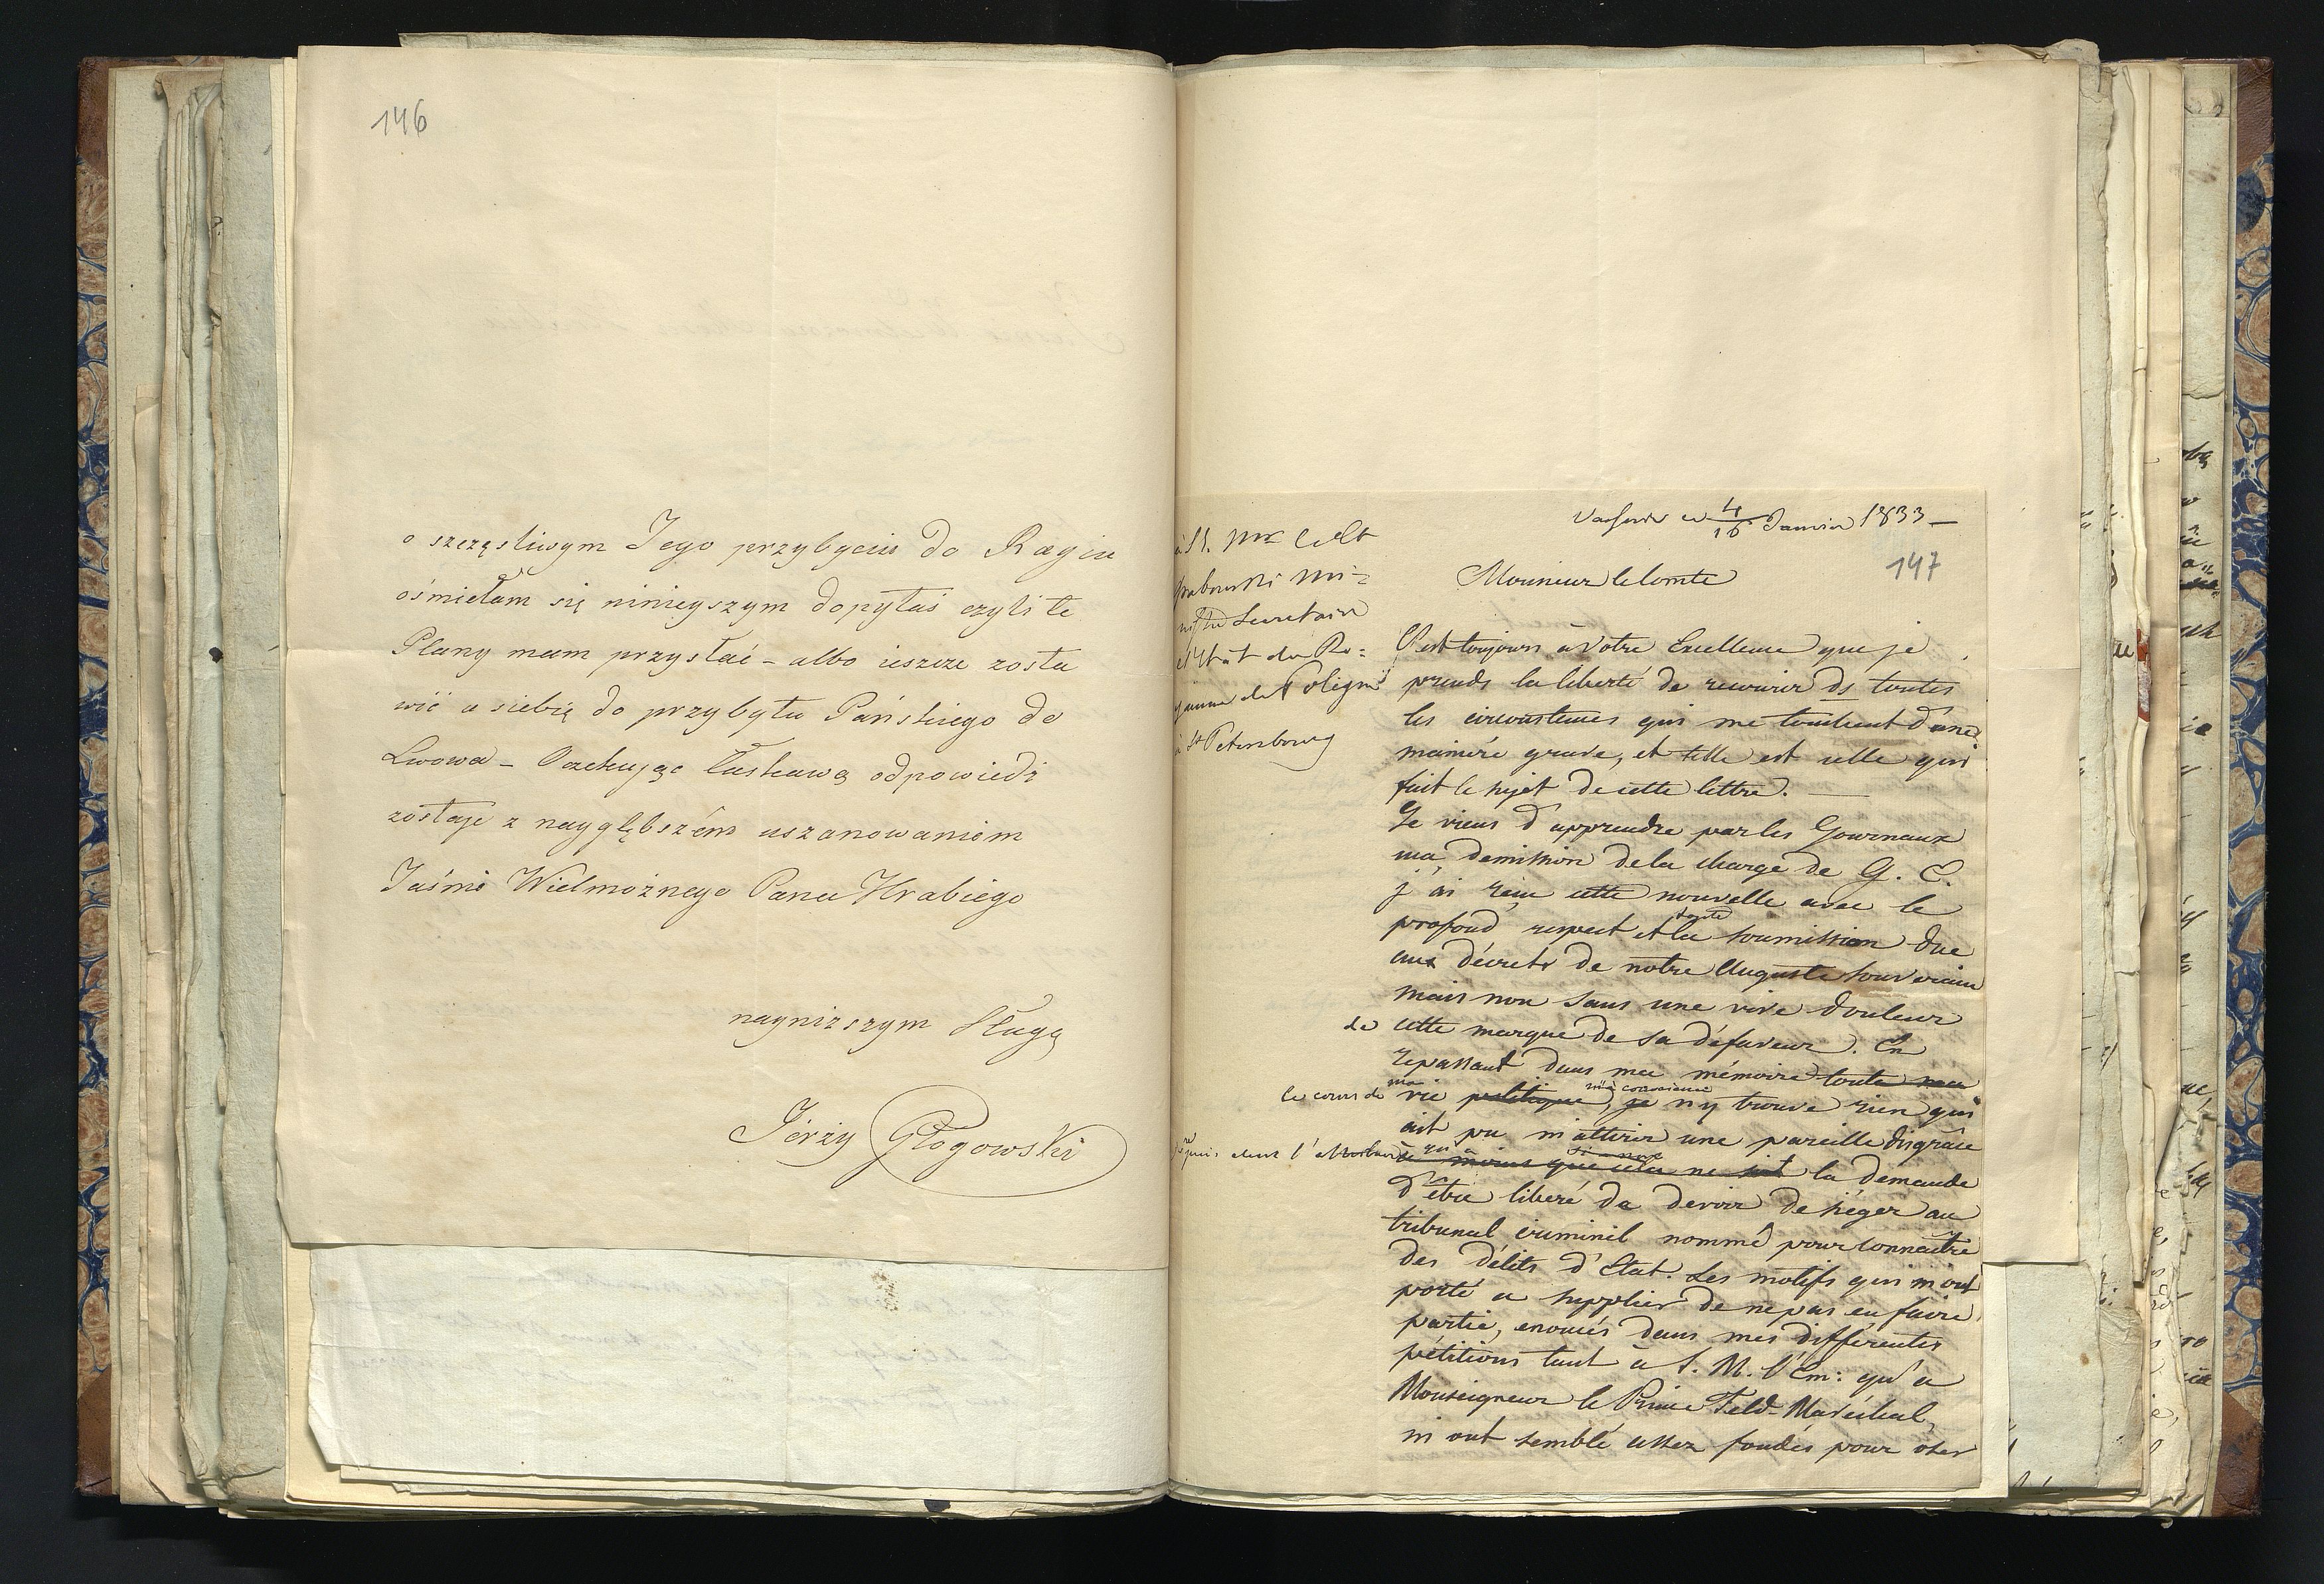 146
o szczęsliwym Jego przybyciu do Kraju
ośmielam się nінieyszym dopytać czyli te
Plany mam przysłać – albo ieszcze zosta
wić u siebię do przybytu Pańskiego do
Lwowa – Oczekując łaskawą odpowiedź
zostaję z nayglębszém uszanowaniem
Jaśnie Wielmożnego Pana Hrabiego
naynizszym Sługą
Jerzy Głogowski
Varsovie ce 4/16 Janvier 1833 –
147
à S. Ex le Cte
Grabowski Mi=
nistre Secretaire
d'Etat du Ro=
yaume de Pologne
à St Petersbourg
Monsieur le Comte
C'est toujours à Votre Excellence que je
prends la liberté de recourir ds toutes
les circonstances qui me touchent d'une
manière grave, et telle est celle qui
fait le sujet de cette lettre. —
Je viens d'apprendre par les Journaux
ma demission de la charge de G. C.
j'ai reçu cette nouvelle avec le
profond respect et la toute soumission due
aux décrets de notre Auguste Souverain
mais non sans une vive douleur
de cette marque de sa défaveur. En
repassant dans ma mémoire toute ma
le cours de ma vie politique, je ma conscience n'y trouve rien qui
ait pu m'attirer une pareille disgrâce
à moins que cela ne soit si non la demande
d'être liberé du devoir de siéger au
tribunal criminel nommé pour connaître
des délits d'Etat. Les motifs qui m'ont
porté a supplier de ne pas en faire
partie, enoncés dans mes différentes
pétitions tant à S. M. l'Em: qu'a
Monseigneur le Prince Feld-Maréchal,
m'ont semblé assez fondés pour oser